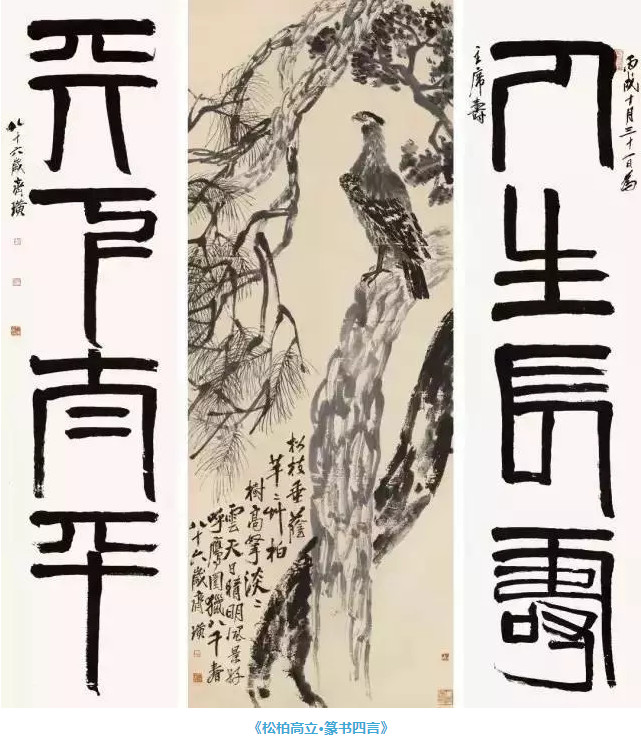 丙戌十月三十一日為
人生長壽
主席壽
松枝垂蔭
芊〻艸柏
樹高擎淡〻
雲天日晴明風景好
呼鷹圍獵八千春
八十六歲齊璜
天下太平
八十六歲齊璜
《松柏高立•篆书四言》